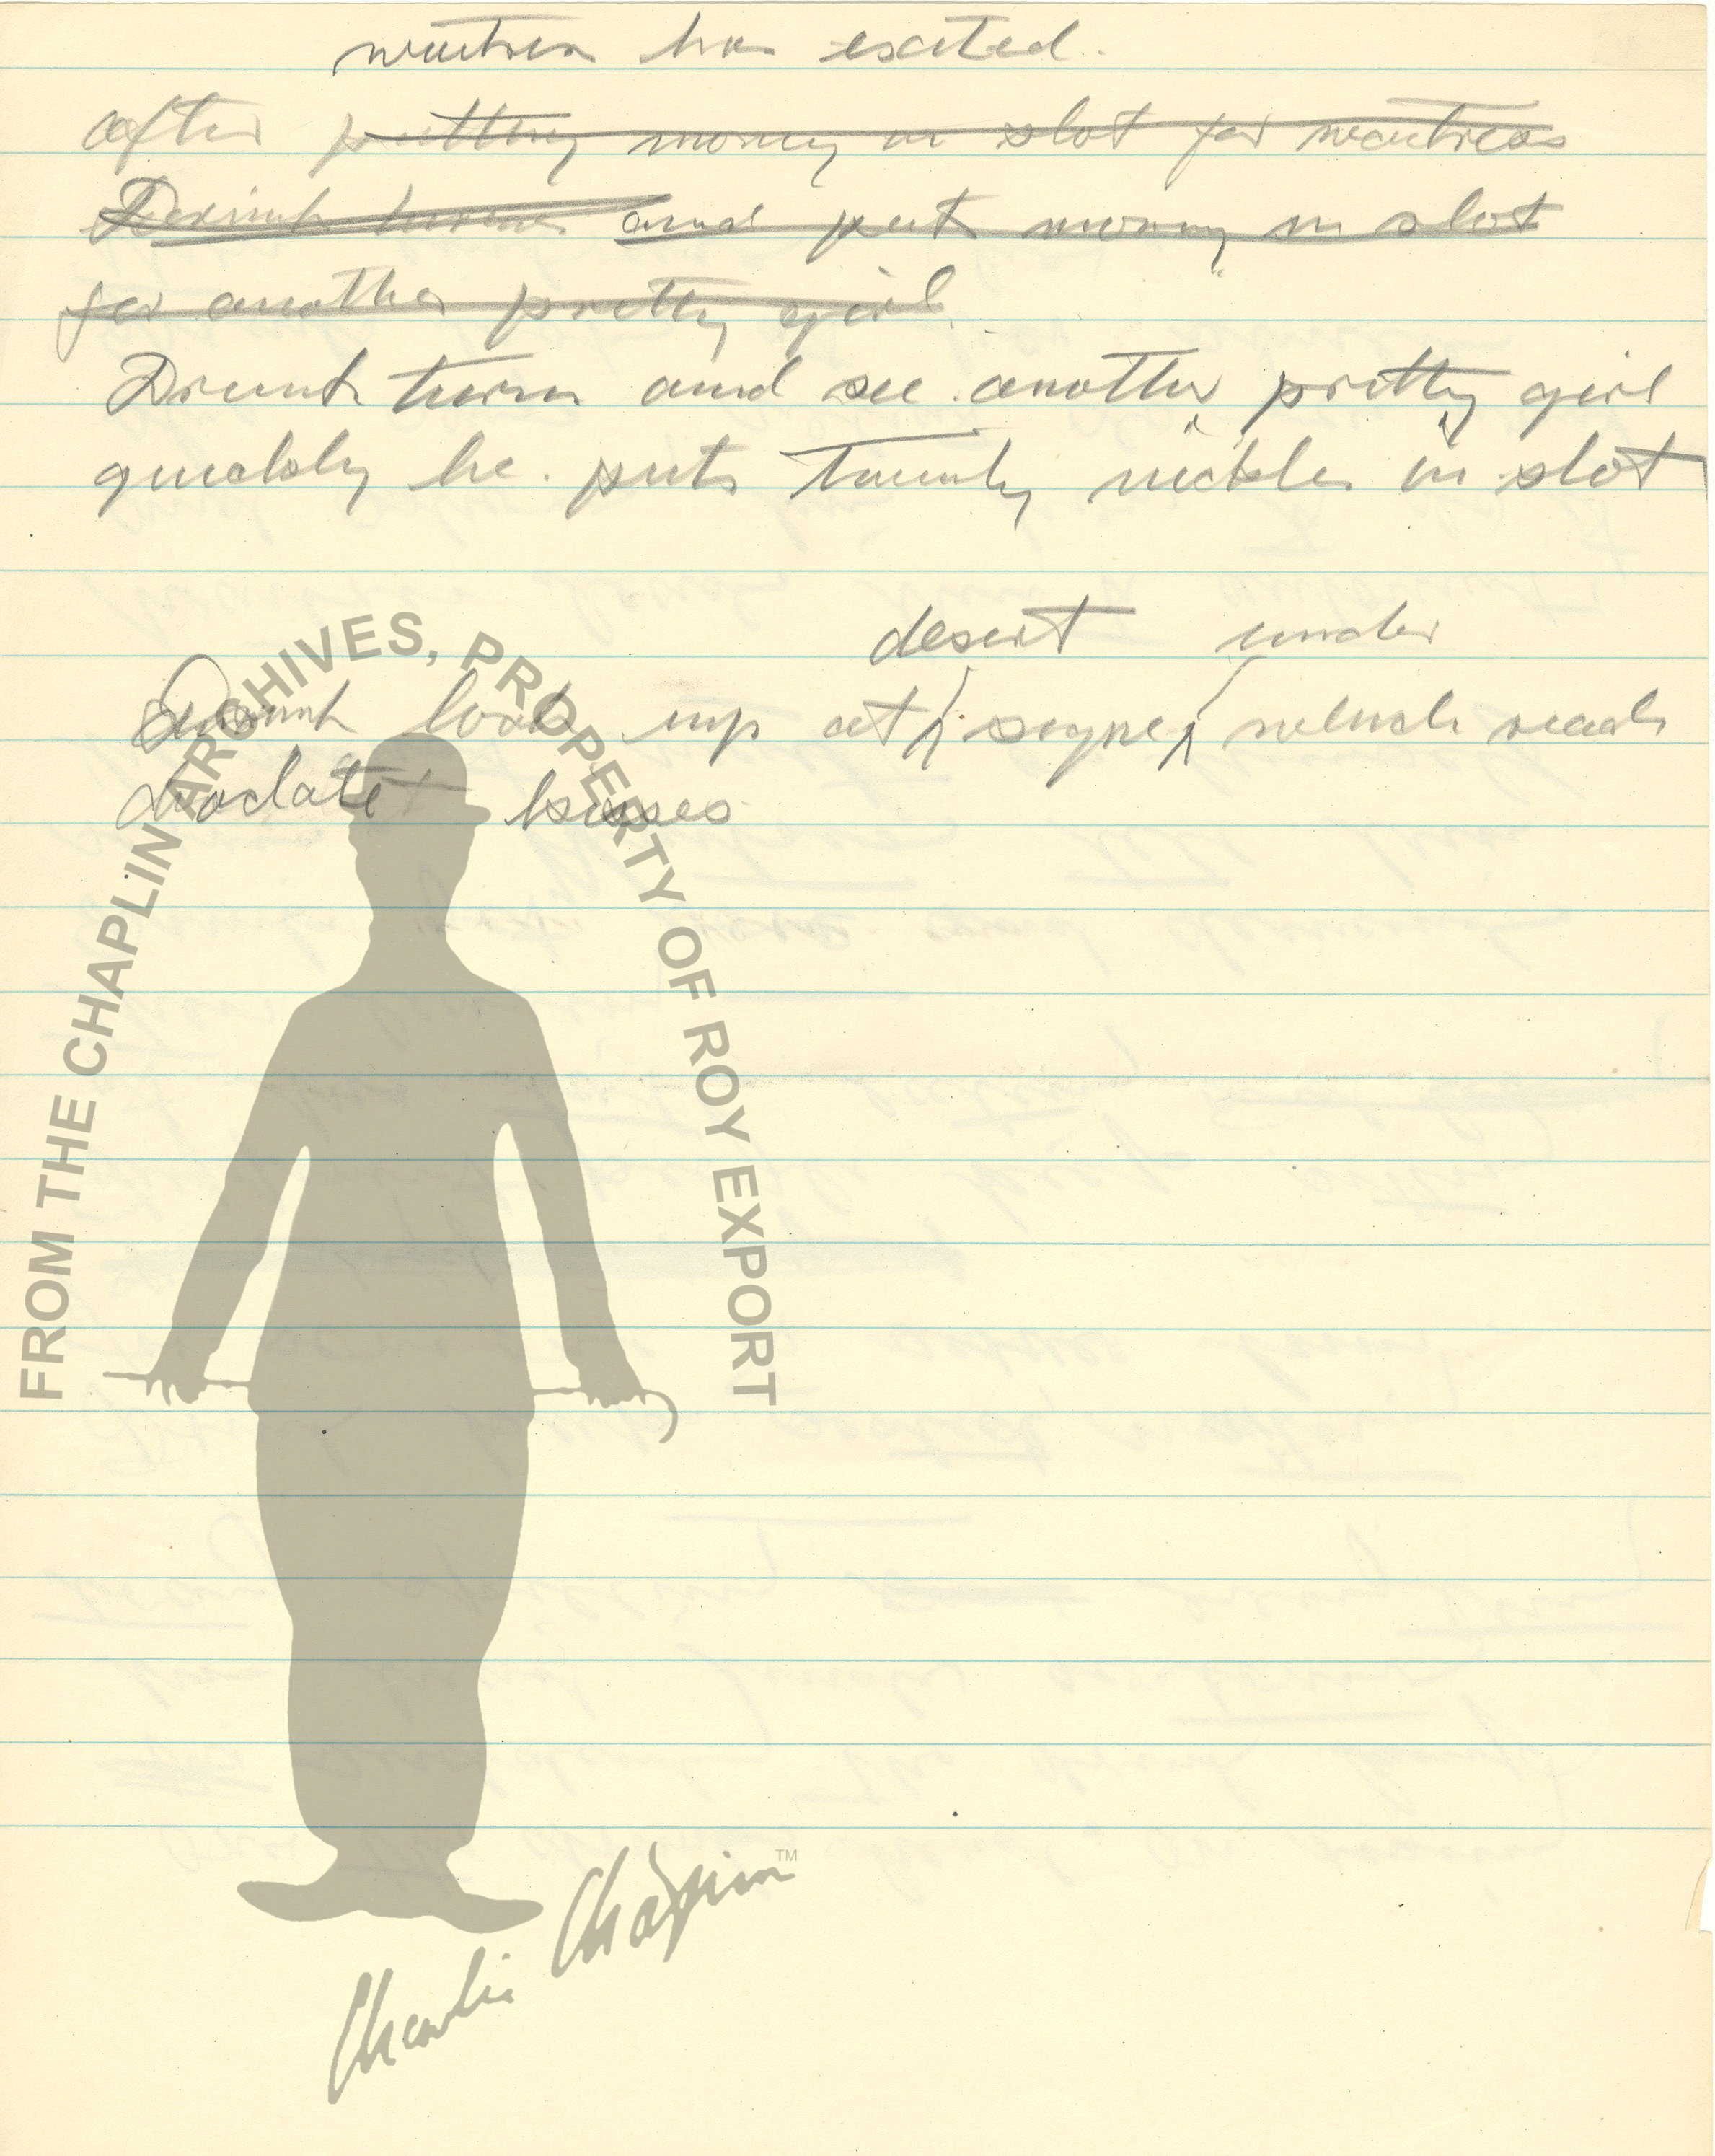 waitress has exited.
after putting money in slot for waitress
Drunk turns and put money in slot
for another pretty girl.
Drunk turns and see another pretty girl
quickly he puts twenty nickles in slot
desert under
Drunk look up at signe which reads
choclate kisses
FROM THE CHAPLIN ARCHIVES, PROPERTY OF ROY EXPORT
Charlie Chaplin™